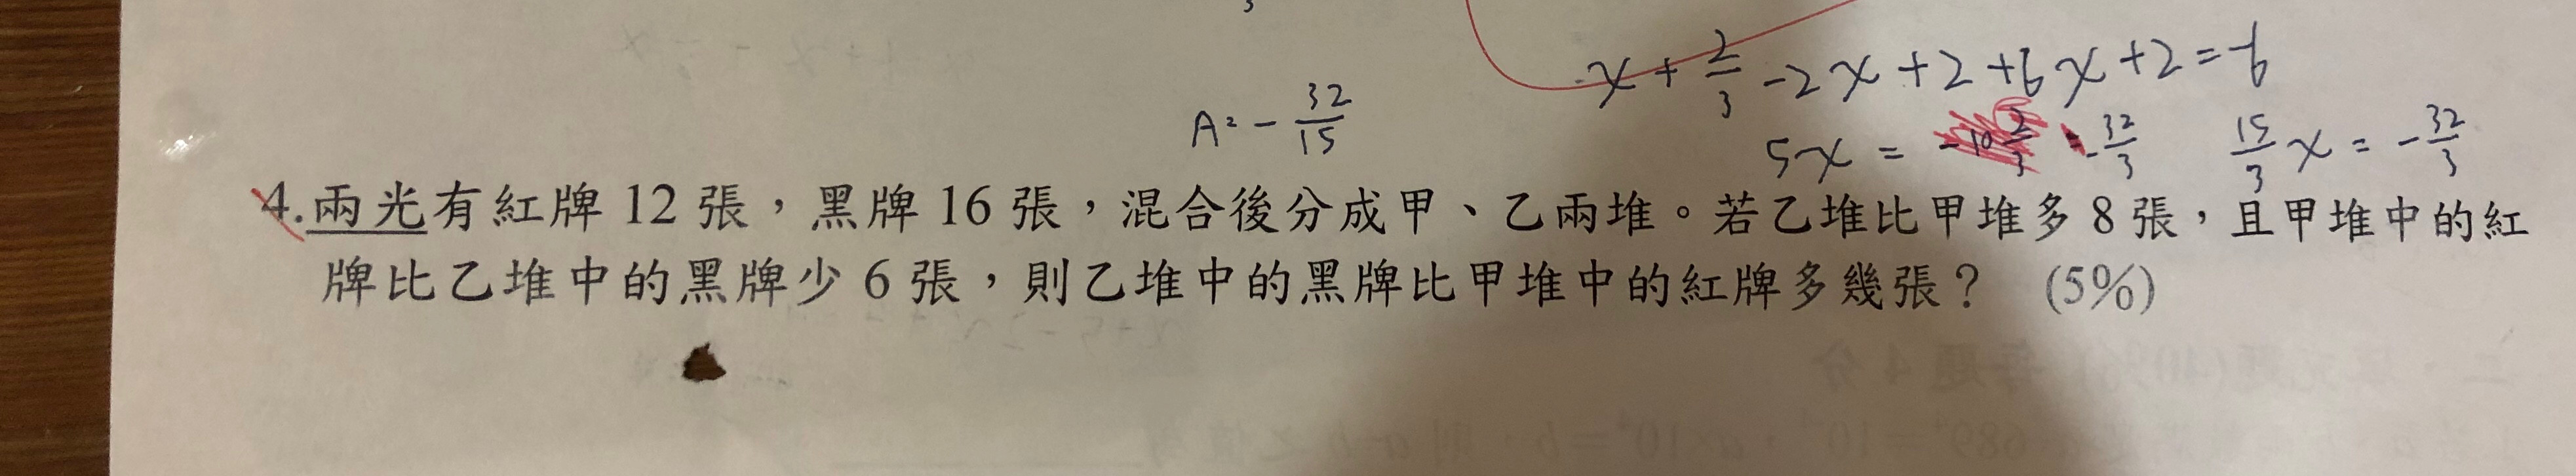 x + 2/3 - 2x + 2 + 6x + 2 = -6
A = - 32/15
5x = - 32/3
15/3 x = - 32/3
4.兩光有紅牌 12 張，黑牌 16 張，混合後分成甲、乙兩堆。若乙堆比甲堆多 8 張，且甲堆中的紅
牌比乙堆中的黑牌少 6 張，則乙堆中的黑牌比甲堆中的紅牌多幾張？ (5%)